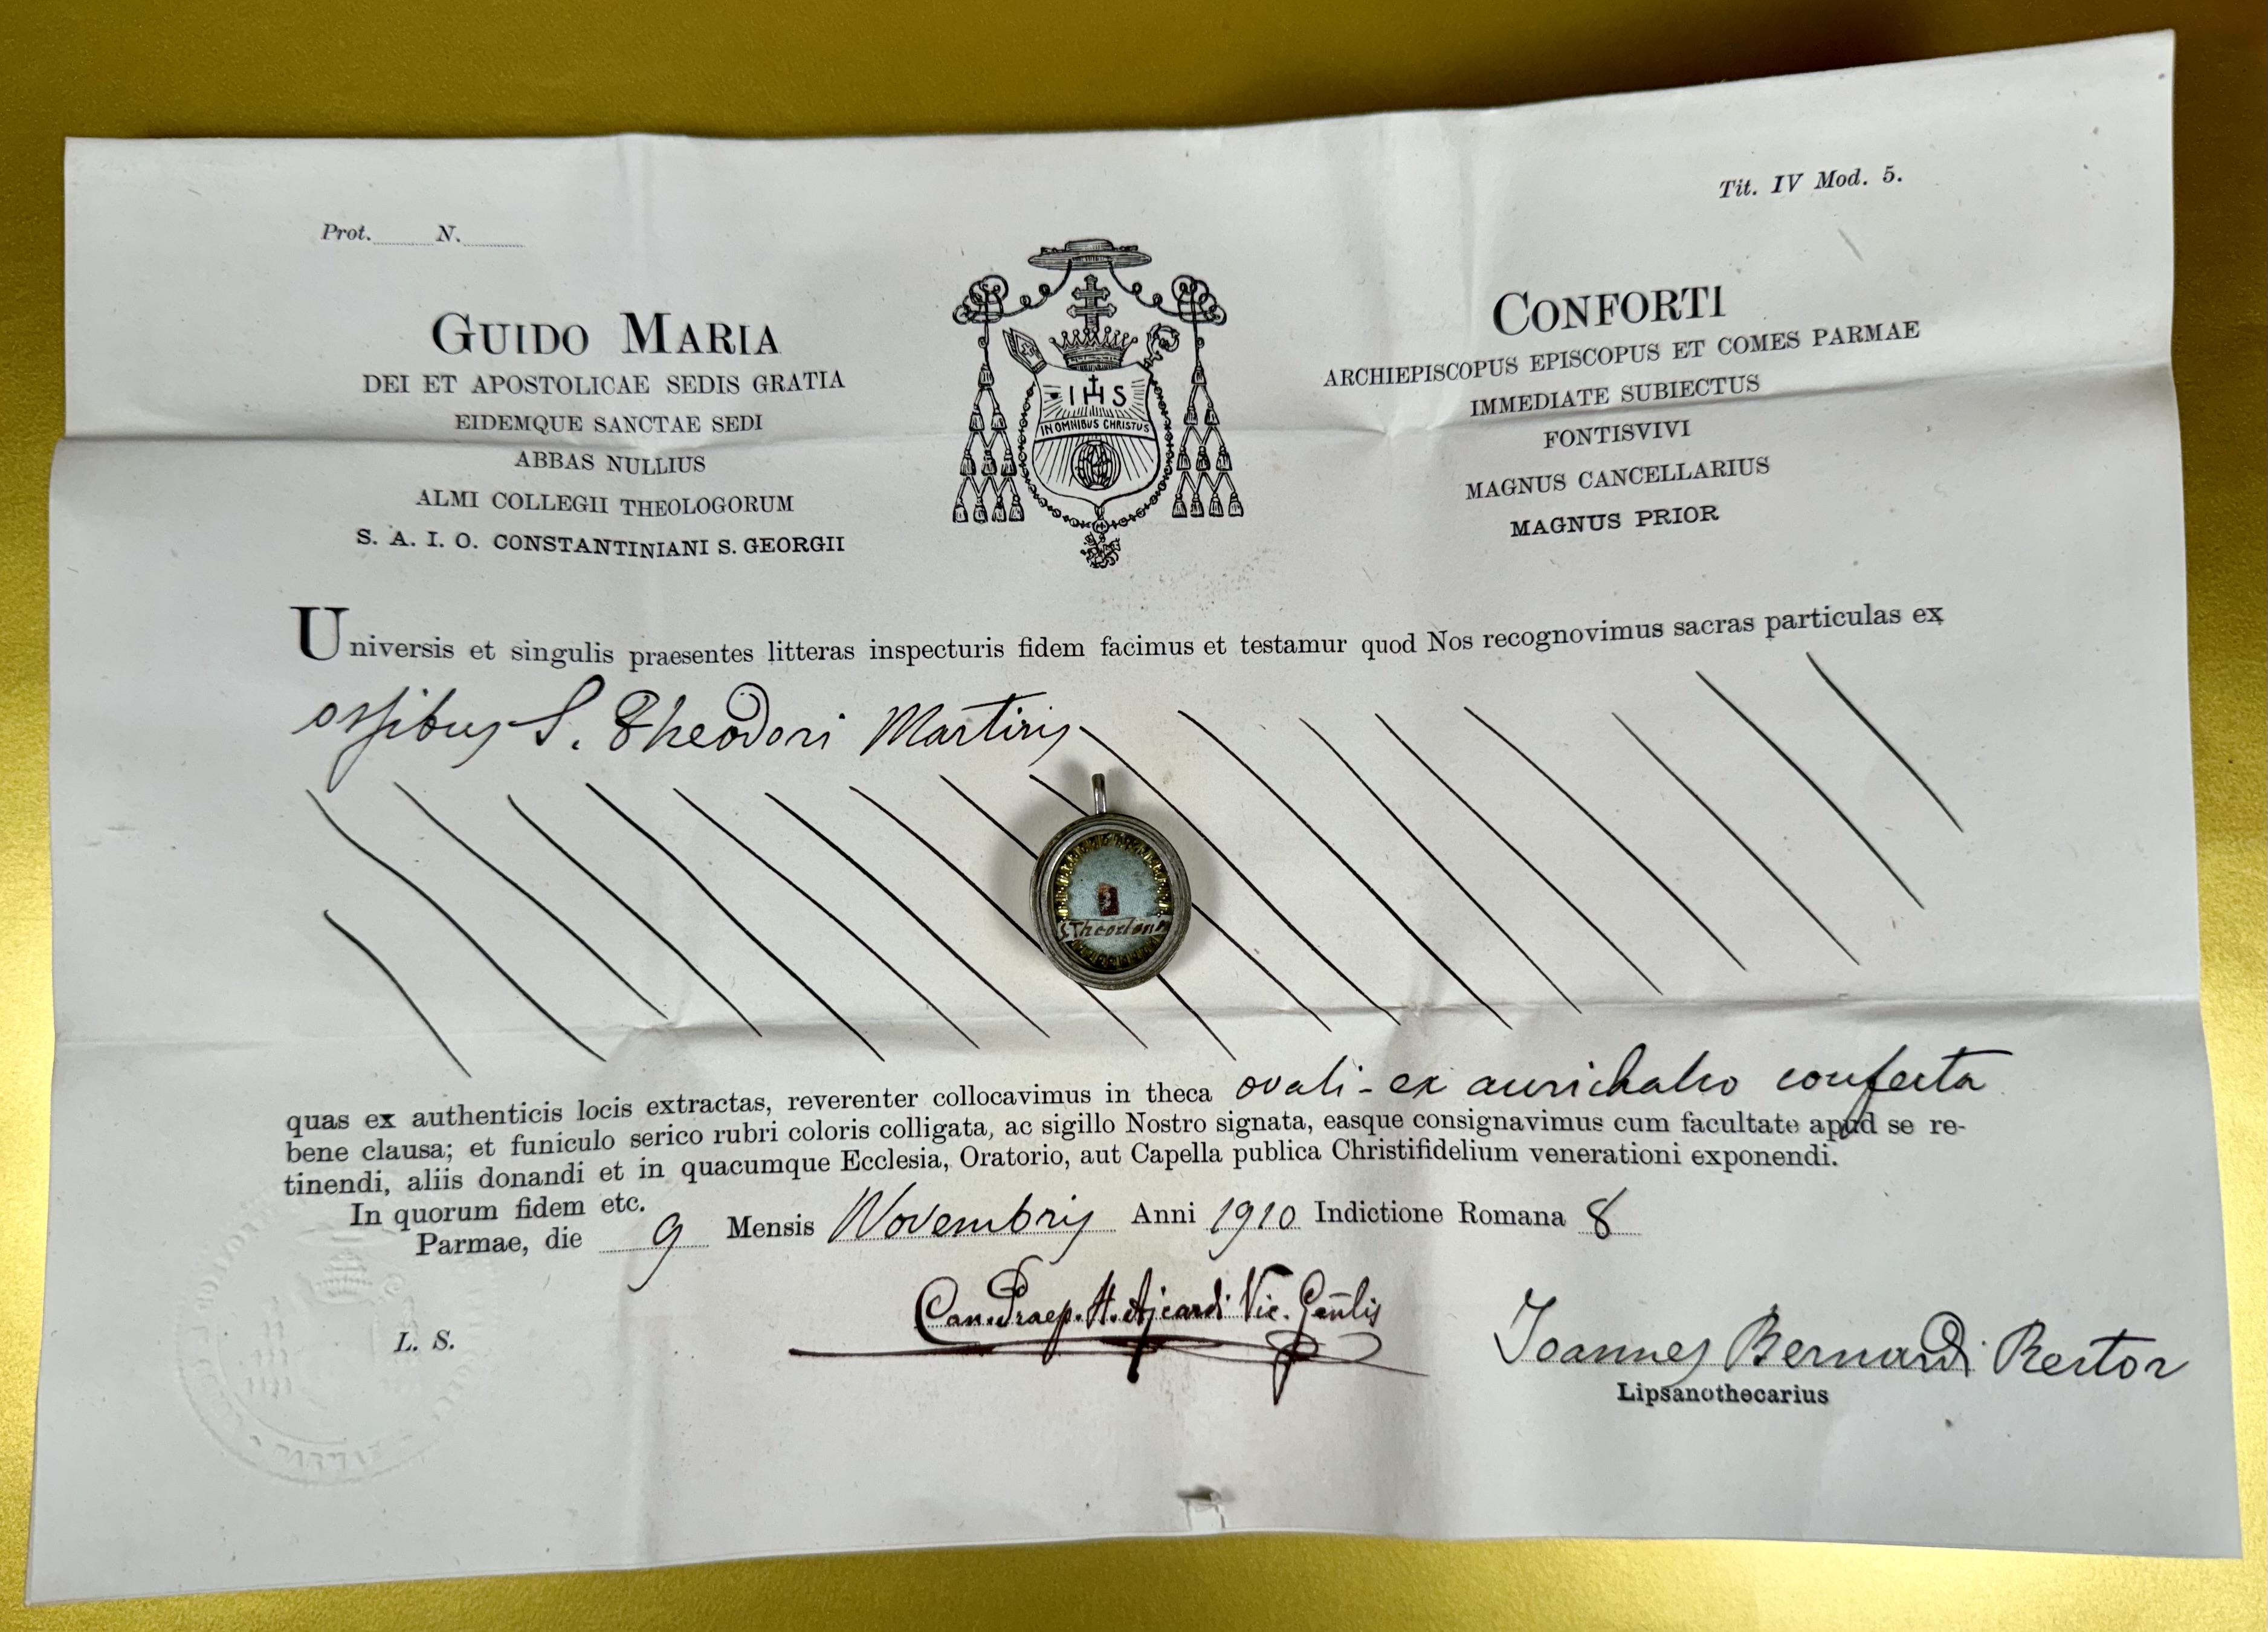 Tit. IV Mod. 5.
Prot. N.
GUIDO MARIA CONFORTI
DEI ET APOSTOLICAE SEDIS GRATIA ARCHIEPISCOPUS EPISCOPUS ET COMES PARMAE
EIDEMQUE SANCTAE SEDI IMMEDIATE SUBIECTUS
ABBAS NULLIUS FONTISVIVI
ALMI COLLEGII THEOLOGORUM MAGNUS CANCELLARIUS
S. A. I. O. CONSTANTINIANI S. GEORGII MAGNUS PRIOR
IHS
IN OMNIBUS CHRISTUS
Universis et singulis praesentes litteras inspecturis fidem facimus et testamur quod Nos recognovimus sacras particulas ex
ossibus S. Theodori Martiris
S Theodori M
quas ex authenticis locis extractas, reverenter collocavimus in theca ovali - ex aurichalco confecta
bene clausa; et funiculo serico rubri coloris colligata, ac sigillo Nostro signata, easque consignavimus cum facultate apud se re-
tinendi, aliis donandi et in quacumque Ecclesia, Oratorio, aut Capella publica Christifidelium venerationi exponendi.
In quorum fidem etc.
Parmae, die 9 Mensis Novembris Anni 1910 Indictione Romana 8
Can. Praep. H. Ajcardi Vic. Gen̄lis
L. S.
Joannes Bernardi Rector
Lipsanothecarius